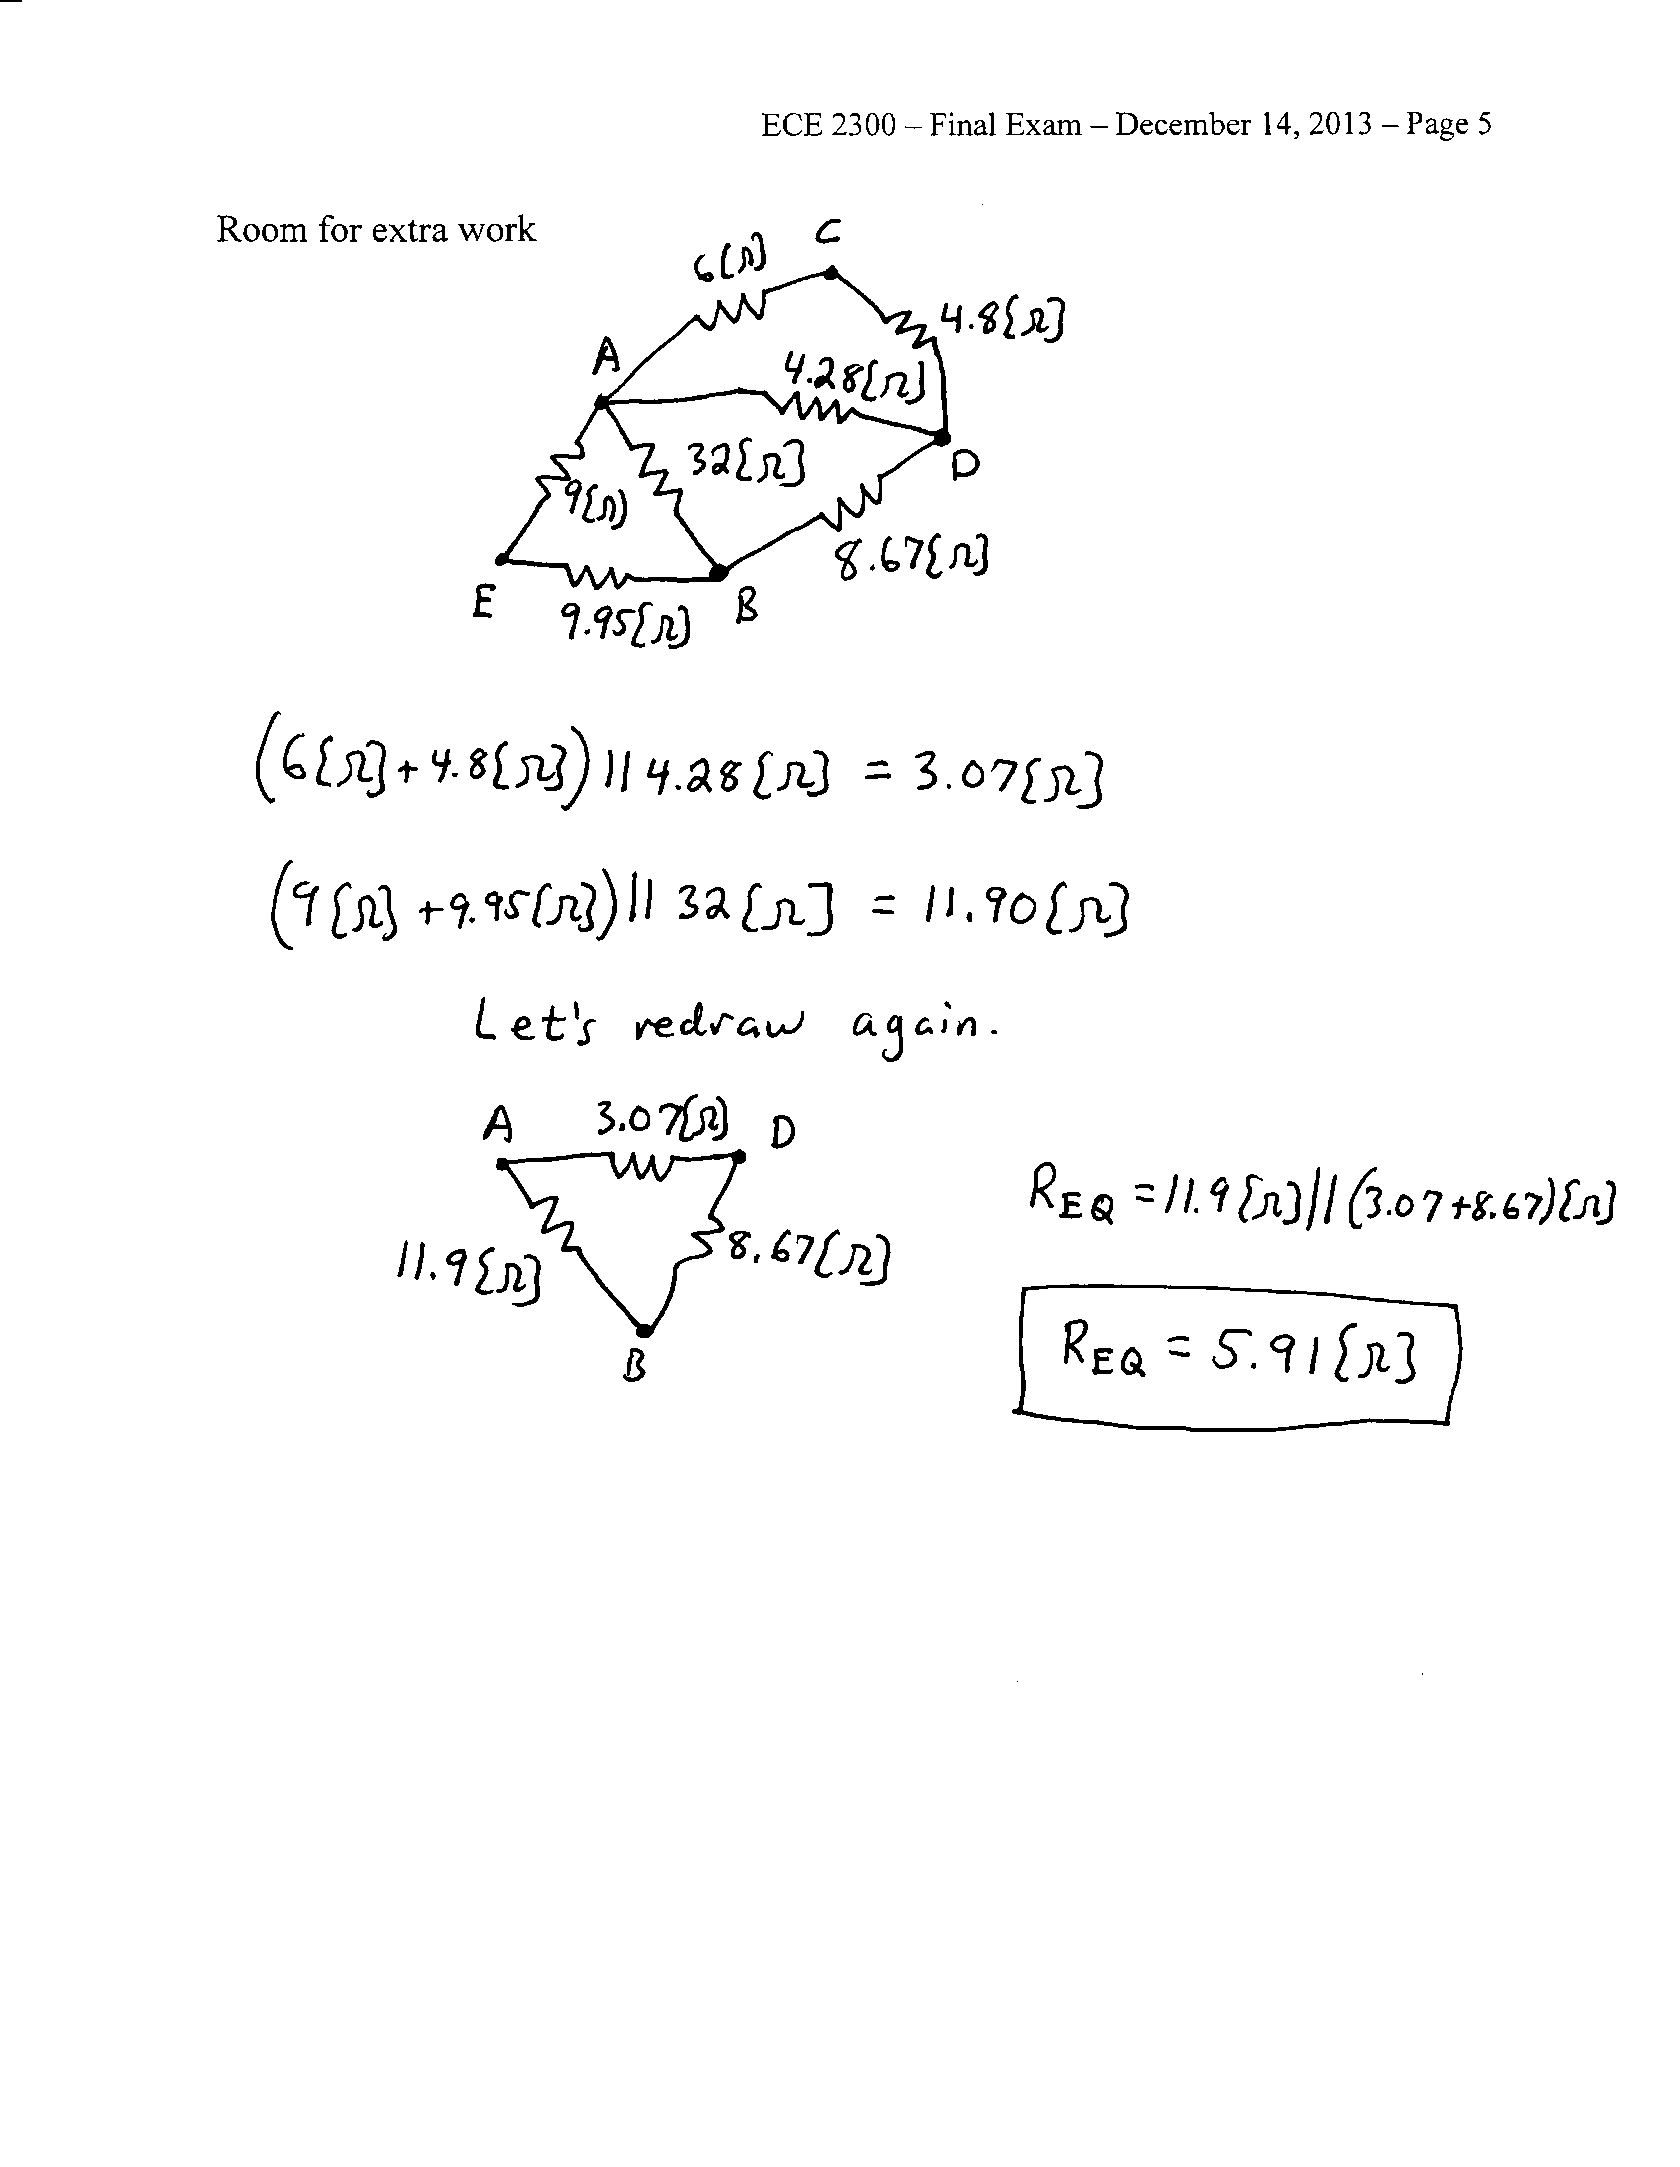 ECE 2300 – Final Exam – December 14, 2013 – Page 5
Room for extra work
C
6[Ω]
4.8[Ω]
A
4.28[Ω]
32[Ω]
D
9[Ω]
8.67[Ω]
E
9.95[Ω]
B
(6[Ω]+4.8[Ω])||4.28[Ω] = 3.07[Ω]
(9[Ω]+9.95[Ω])||32[Ω] = 11.90[Ω]
Let's redraw again.
A 3.07[Ω] D
R_EQ = 11.9[Ω]||(3.07+8.67)[Ω]
11.9[Ω] 8.67[Ω]
B
R_EQ = 5.91[Ω]